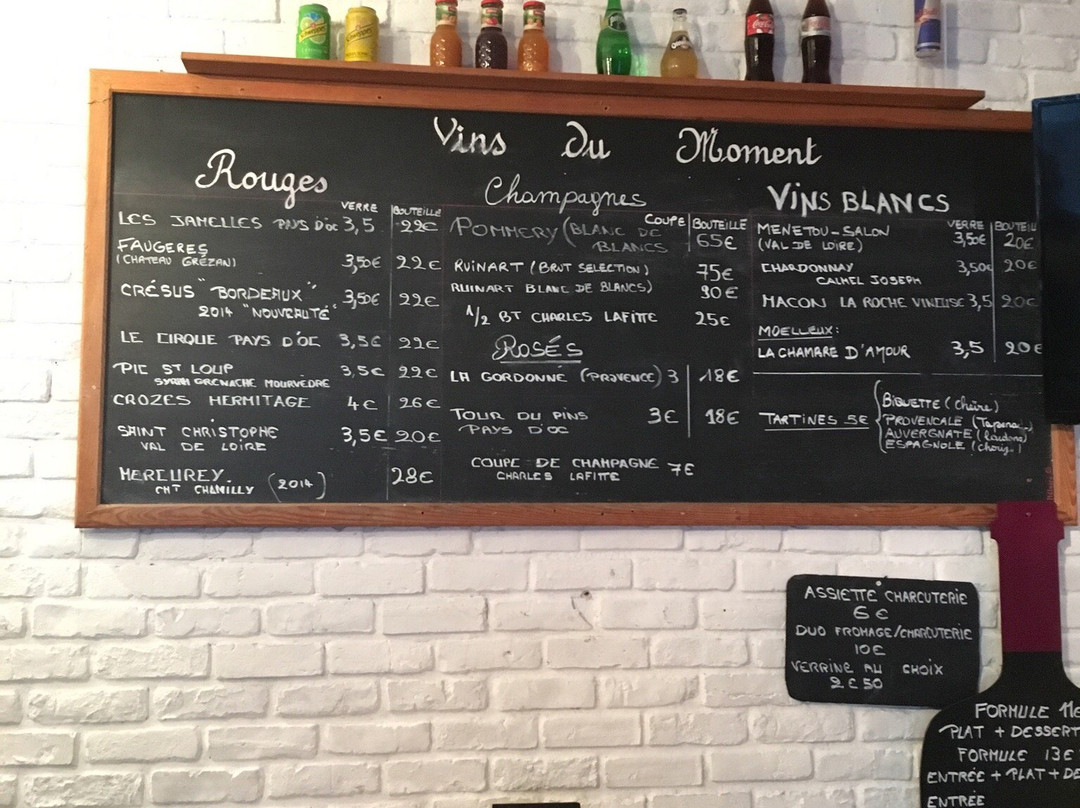 Vins Du Moment
Rouges
VERRE BOUTEILLE
LES JAMELLES PAYS D'OC 3,5 22€
FAUGERES
(CHATEAU GRÉZAN) 3,50€ 22€
CRÉSUS "BORDEAUX" 3,50€ 22€
2014 "NOUVEAUTÉ"
LE CIRQUE PAYS D'OC 3,5€ 22€
PIC ST LOUP 3,5€ 22€
SYRAH GRENACHE MOURVÈDRE
CROZES HERMITAGE 4€ 26€
SAINT CHRISTOPHE 3,5€ 20€
VAL DE LOIRE
MERCUREY. 28€
CHT CHAMILLY (2014)
Champagnes
COUPE BOUTEILLE
POMMERY (BLANC DE
BLANCS 65€
RUINART (BRUT SELECTION) 75€
RUINART BLANC DE BLANCS) 90€
1/2 BT CHARLES LAFITTE 25€
ROSÉS
LA GORDONNE (PROVENCE) 3 18€
TOUR DU PINS 3€ 18€
PAYS D'OC
COUPE DE CHAMPAGNE 7€
CHARLES LAFITTE
VINS BLANCS
VERRE BOUTEIL
MENETOU-SALON 3,50€ 20€
(VAL DE LOIRE)
CHARDONNAY 3,50€ 20€
CALMEL JOSEPH
MACON LA ROCHE VINEUSE 3,5 20€
MOELLEUX:
LA CHAMARE D'AMOUR 3,5 20€
TARTINES 5€
BIQUETTE (Chèvre)
PROVENCALE (Tapenade)
AUVERGNATE (lardons)
ESPAGNOLE (choriz.)
ASSIETTE CHARCUTERIE
6€
DUO FROMAGE/CHARCUTERIE
10€
VERRINE AU CHOIX
2€50
FORMULE 11€
PLAT + DESSERT
FORMULE 13€
ENTRÉE + PLAT + DE
ENTRÉE